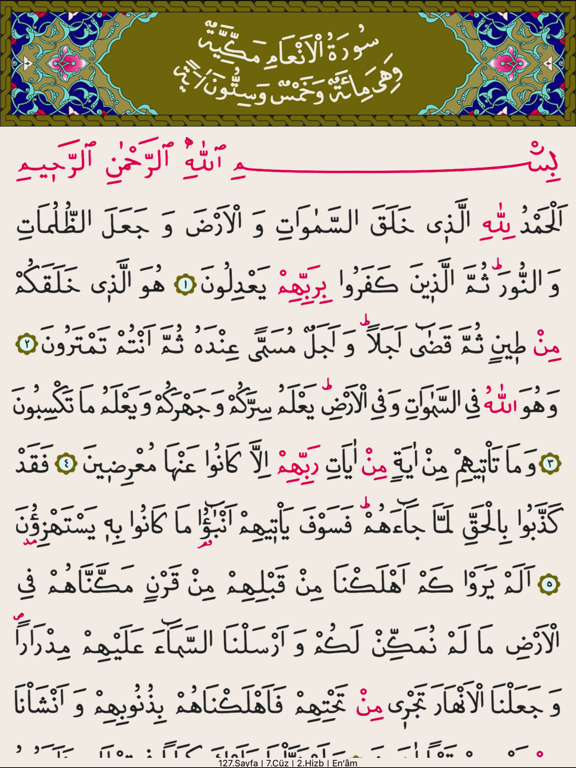 سُورَةُ الْاَنْعَامِ مَكِّيَّةٌ
وَهِىَ مِائَةٌ وَخَمْسٌ وَسِتُّونَ اٰيَةً
بِسْمِ اللّٰهِ الرَّحْمٰنِ الرَّحٖيمِ
اَلْحَمْدُ لِلّٰهِ الَّذٖى خَلَقَ السَّمٰوَاتِ وَ الْاَرْضَ وَ جَعَلَ الظُّلُمَاتِ
وَ النُّورَؕ ثُمَّ الَّذٖينَ كَفَرُوا بِرَبِّهِمْ يَعْدِلُونَ ﴿١﴾ هُوَ الَّذٖى خَلَقَكُمْ
مِنْ طٖينٍ ثُمَّ قَضٰٓى اَجَلًاؕ وَ اَجَلٌ مُسَمًّى عِنْدَهُ ثُمَّ اَنْتُمْ تَمْتَرُونَ ﴿٢﴾
وَ هُوَ اللّٰهُ فِى السَّمٰوَاتِ وَ فِى الْاَرْضِؕ يَعْلَمُ سِرَّكُمْ وَ جَهْرَكُمْ وَ يَعْلَمُ مَا تَكْسِبُونَ
﴿٣﴾ وَ مَا تَاْتٖيهِمْ مِنْ اٰيَةٍ مِنْ اٰيَاتِ رَبِّهِمْ اِلَّا كَانُوا عَنْهَا مُعْرِضٖينَ ﴿٤﴾ فَقَدْ
كَذَّبُوا بِالْحَقِّ لَمَّا جَٓاءَهُمْؕ فَسَوْفَ يَاْتٖيهِمْ اَنْبٰٓؤُ۬ا مَا كَانُوا بِهٖ يَسْتَهْزِؤُ۫نَ
﴿٥﴾ اَلَمْ يَرَوْا كَمْ اَهْلَكْنَا مِنْ قَبْلِهِمْ مِنْ قَرْنٍ مَكَّنَّاهُمْ فِى
الْاَرْضِ مَا لَمْ نُمَكِّنْ لَكُمْ وَ اَرْسَلْنَا السَّمَٓاءَ عَلَيْهِمْ مِدْرَارًاࣕ
وَ جَعَلْنَا الْاَنْهَارَ تَجْرٖى مِنْ تَحْتِهِمْ فَاَهْلَكْنَاهُمْ بِذُنُوبِهِمْ وَ اَنْشَاْنَا
127.Sayfa | 7.Cüz | 2.Hizb | En'âm